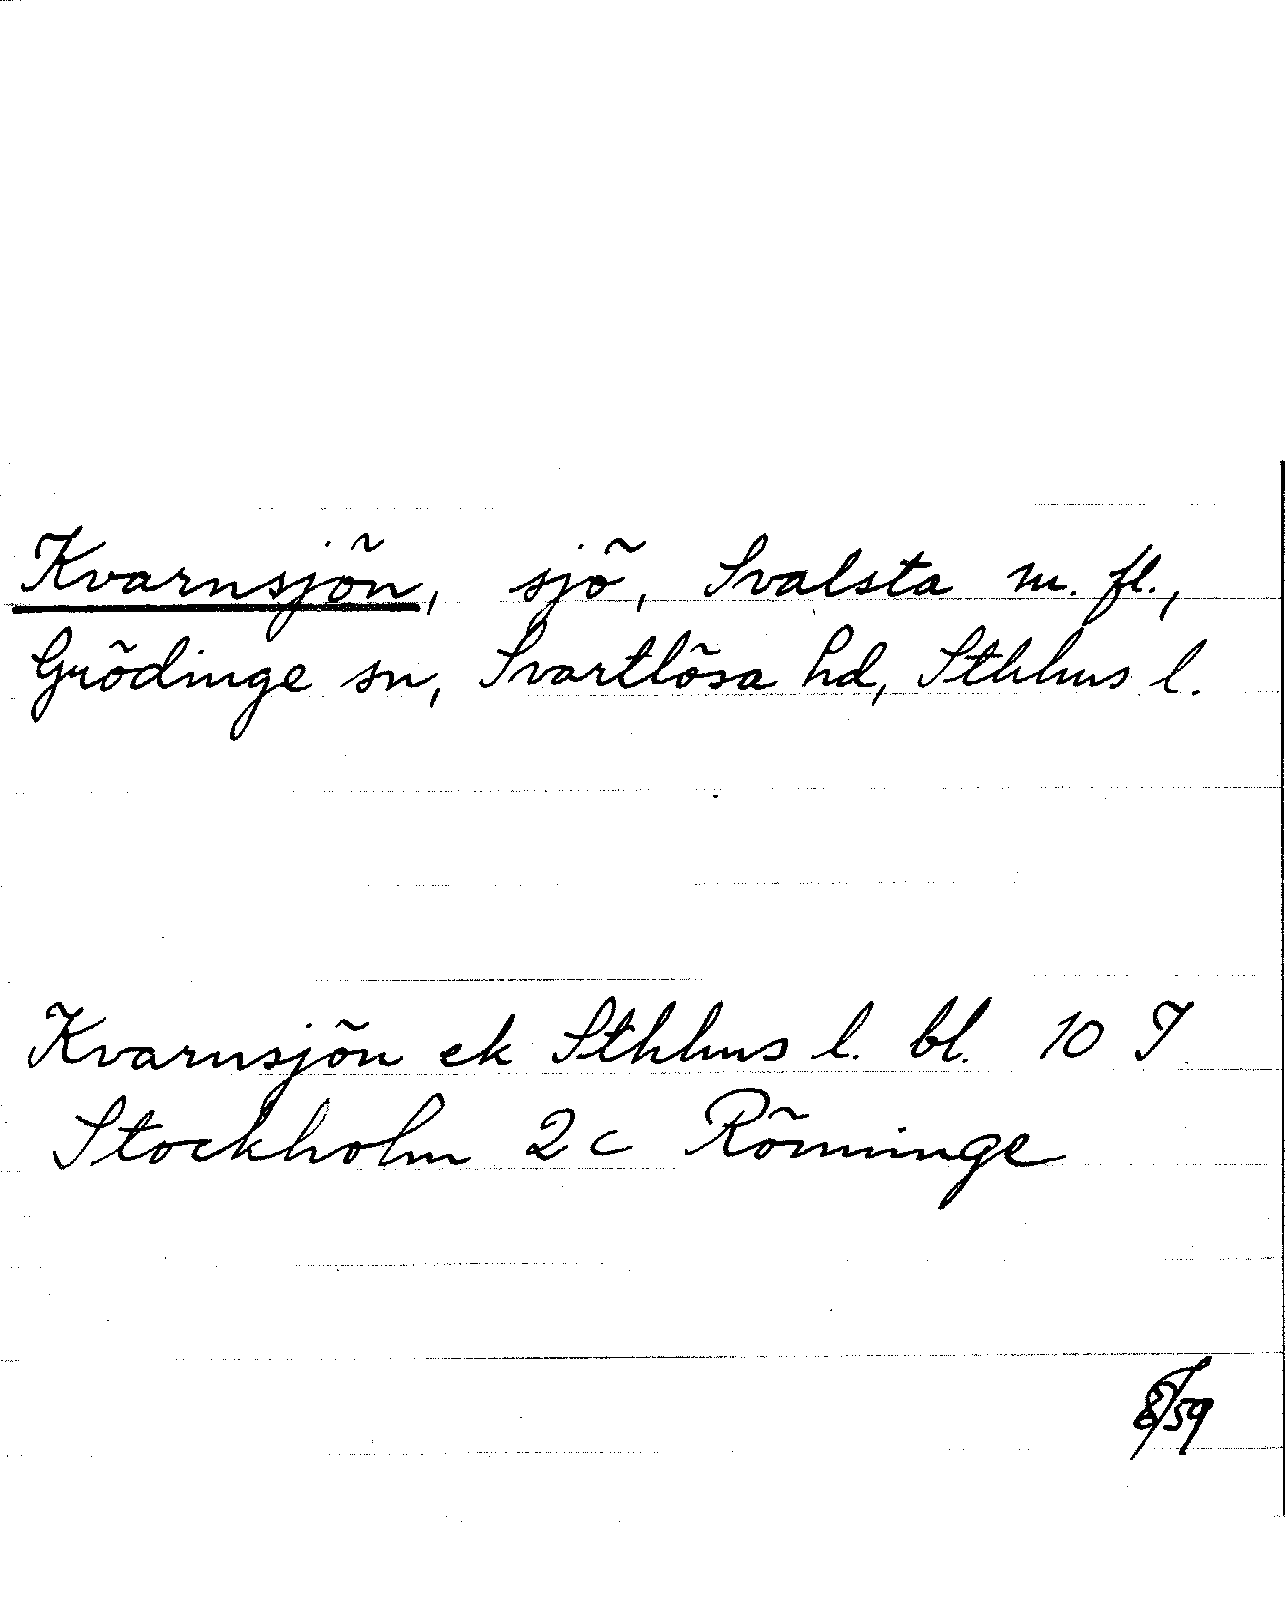 Kvarnsjön, sjö, Svalsta m. fl.,
Grödinge sn, Svartlösa hd, Sthlms l.
Kvarnsjön ek Sthlms l. bl. 10 I
Stockholm 2c Rönninge
8/59